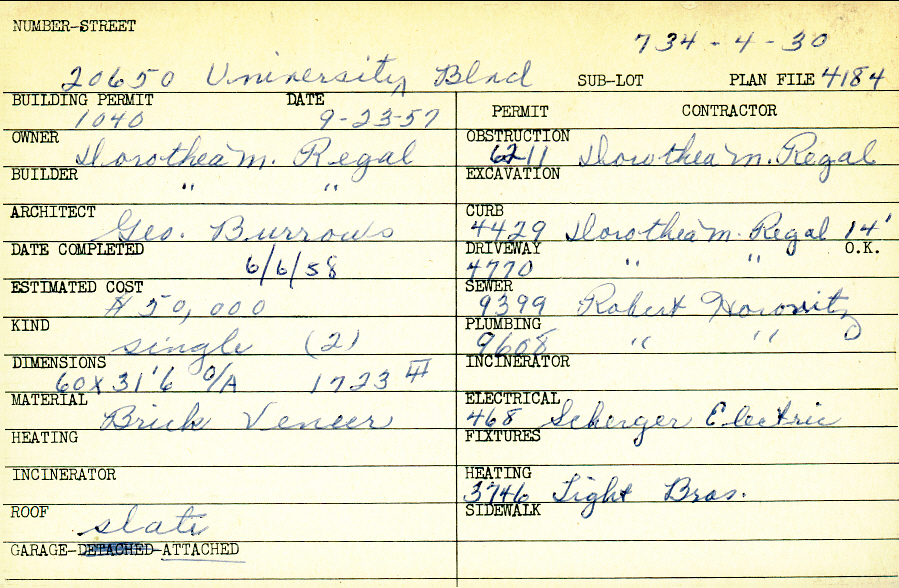 NUMBER-STREET
734-4-30
20650 University Blvd SUB-LOT PLAN FILE 4184
BUILDING PERMIT DATE PERMIT CONTRACTOR
1040 9-23-57
OWNER Dorothea M. Regal
OBSTRUCTION 6211 Dorothea M. Regal
BUILDER " "
EXCAVATION
ARCHITECT Geo. Burrows
CURB 4429 Dorothea M. Regal 14'
DATE COMPLETED 6/6/58
DRIVEWAY 4770 " " O.K.
ESTIMATED COST $50,000
SEWER 9399 Robert Horovitz
KIND single (2)
PLUMBING 9608 " "
DIMENSIONS 60x31'6 O/A 1723 III
INCINERATOR
MATERIAL Brick Veneer
ELECTRICAL 468 Scherger Electric
HEATING
FIXTURES
INCINERATOR
HEATING 3746 Tight Bros.
ROOF slate
SIDEWALK
GARAGE-DETACHED-ATTACHED